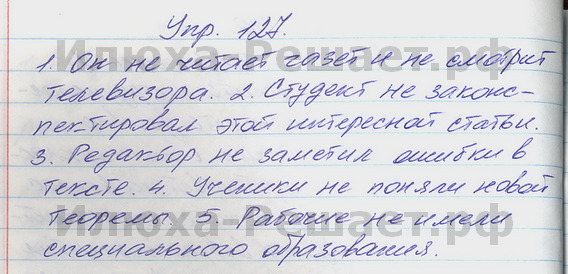 Упр. 127.
Илюха-Решает.рф
1. Он не читает газет и не смотрит
телевизора. 2. Студент не законс-
пектировал этой интересной статьи.
3. Редактор не заметил ошибки в
тексте. 4. Ученики не поняли новой
теоремы. 5. Рабочие не имели
Илюха-Решает.рф
специального образования.